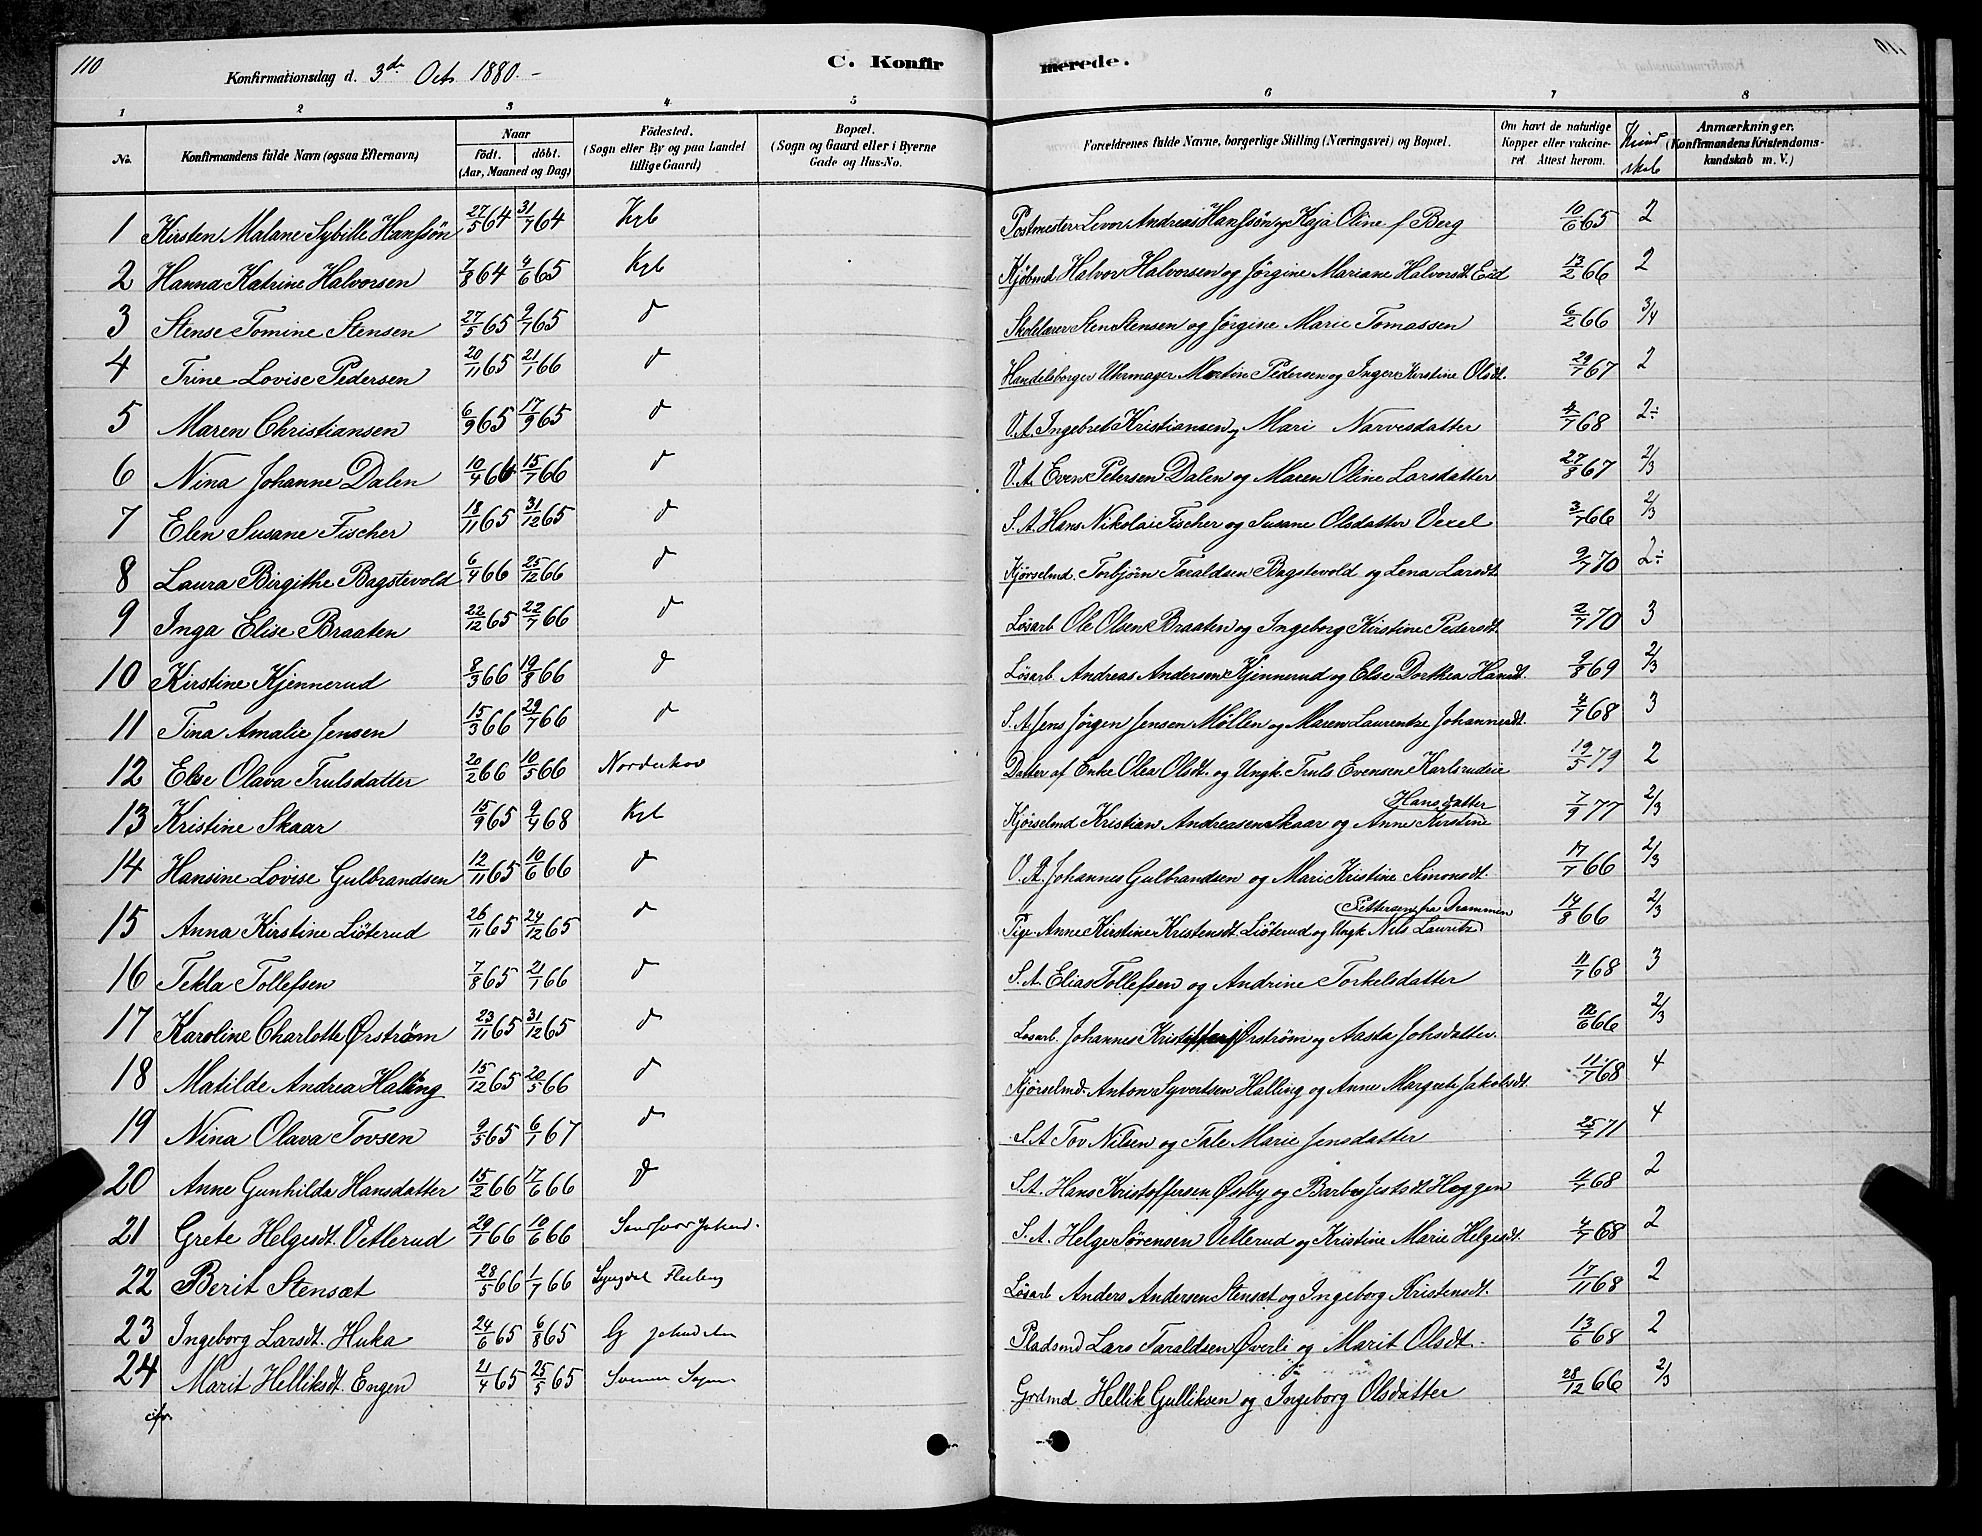 110
Konfirmationsdag d. 3de Oct. 1880.-
C. Konfirmerede.
1 2 3 4 5 6 7 8
No.
Konfirmandens fulde Navn (ogsaa Efternavn)
Naar
födt. döbt.
(Aar, Maaned og Dag)
Födested.
(Sogn eller By og paa Landet
tillige Gaard)
Bopæl.
(Sogn og Gaard eller i Byerne
Gade og Hus-No.
Forældrenes fulde Navne, borgerlige Stilling (Næringsvei) og Bopæl.
Om havt de naturlige
Kopper eller vakcine-
ret Attest herom.
Kund
skab
Anmærkninger.
(Konfirmandens Kristendoms-
kundskab m. V.)
1 Kirsten Malane Sybille Hanssön 27/5 64 31/7 64 Kgb Postmester Levor Andreas Hanssön og Kaja Oline f Berg 10/6 65 2
2 Hanna Katrine Halvorsen 7/8 64 4/6 65 Kgb Kjöbmd. Halvor Halvorsen og Jörgine Mariane Halvorsdt. Eid 13/2 66 2
3 Stense Tomine Stensen 27/5 65 9/7 65 d Skolelærer Sten Stensen og Jörgine Marie Tomassen 6/2 66 3/4
4 Trine Lovise Pedersen 20/11 65 21/1 66 d Handelsborger Uhrmager Martin Pedersen og Inger Kirstine Olsdt. 29/7 67 2
5 Maren Christiansen 6/9 65 17/9 65 d V.A. Ingebret Kristiansen og Mari Narvesdatter 4/7 68 2÷
6 Nina Johanne Dalen 10/4 66 15/7 66 d V.A. Even Petersen Dalen og Maren Oline Larsdatter 27/8 67 2/3
7 Elen Susane Fischer 18/11 65 31/12 65 d S.A. Hans Nikolai Fischer og Susane Olsdatter Vexel 3/7 66 2/3
8 Laura Birgithe Bagstevold 6/4 66 25/12 66 d Kjörselmd. Torbjörn Taraldsen Bagstevold og Lena Larsdt 9/7 70 2÷
9 Inga Elise Braaten 22/12 65 22/7 66 d Lösarb Ole Olsen Braaten og Ingeborg Kirstine Pedersdt. 2/7 70 3
10 Kirstine Kjennerud 8/3 66 19/8 66 d Lösarb. Andreas Andersen Kjennerud og Else Dorthea Hansdt. 9/8 69 2/3
11 Tina Amalie Jensen 15/3 66 29/7 66 d S.A. Jens Jörgen Jensen Möllen og Maren Laurentze Johannesdt. 4/7 68 3
12 Else Olava Trulsdatter 20/2 66 10/5 66 Norderhov Datter af Enke Olea Olsdt. og Ungk. Truls Evensen Karlsrudeie 19/5 79 2
Hansdatter
13 Kristine Skaar 15/9 65 9/4 68 Kgb Kjörselmd Kristian Andreasen Skaar og Anne Kirstine 7/9 77 2/3
14 Hansine Lovise Gulbrandsen 12/11 65 10/6 66 d V.A. Johannes Gulbrandsen og Mari Kristine Simonsdt. 17/7 66 2/3
Pettersen fra Drammen
15 Anna Kirstine Liöterud 26/11 65 24/12 65 d Pige Anne Kirstine Kristensdt. Liöterud og Ungk Nils Lauritz 14/8 66 2/3
16 Tekla Tollefsen 7/8 65 21/1 66 d S.A. Elias Tollefsen og Andrine Torkelsdatter 11/7 68 3
17 Karoline Charlotte Örström 23/11 65 31/12 65 d Lösarb. Johannes Kristoffers Örström og Aasta Johsdatter. 12/6 66 2/3
18 Matilde Andrea Halling 15/12 65 20/5 66 d Kjörselmd. Anton Syvertsen Halling og Anne Margrete Jakobsdt 11/7 68 4
19 Nina Olava Tovsen 9/5 65 6/1 67 d S.A Tov Nilsen og Tale Marie Jensdatter 25/7 71 4
20 Anne Gunhilda Hansdatter 15/2 66 17/6 66 d S.A. Hans Kristoffersen Østby og Barbro Hoggen 11/7 68 2
21 Grete Helgesdt. Vetlerud 29/1 66 10/6 66 S.A. Helge Sørensen Vetlerud og Kristine Marie Helgesdt. 4/7 68 2
22 Berit Stensæt 28/5 66 1/7 66 Lyngdal Flesberg Lösarb Anders Andersen Stensæt og Ingeborg Kristensdt. 17/11 68 2
23 Ingeborg Larsdt. Huka 24/6 65 6/8 65 Pladsmd Lars Taraldsen Øverli og Marit Olsdt. 13/6 68 2
24 Marit Helliksdt. Engen 21/4 65 25/5 65 Svenne Grdmd Hellik Gulliksen og Ingeborg Olsdatter 28/12 66 2/3